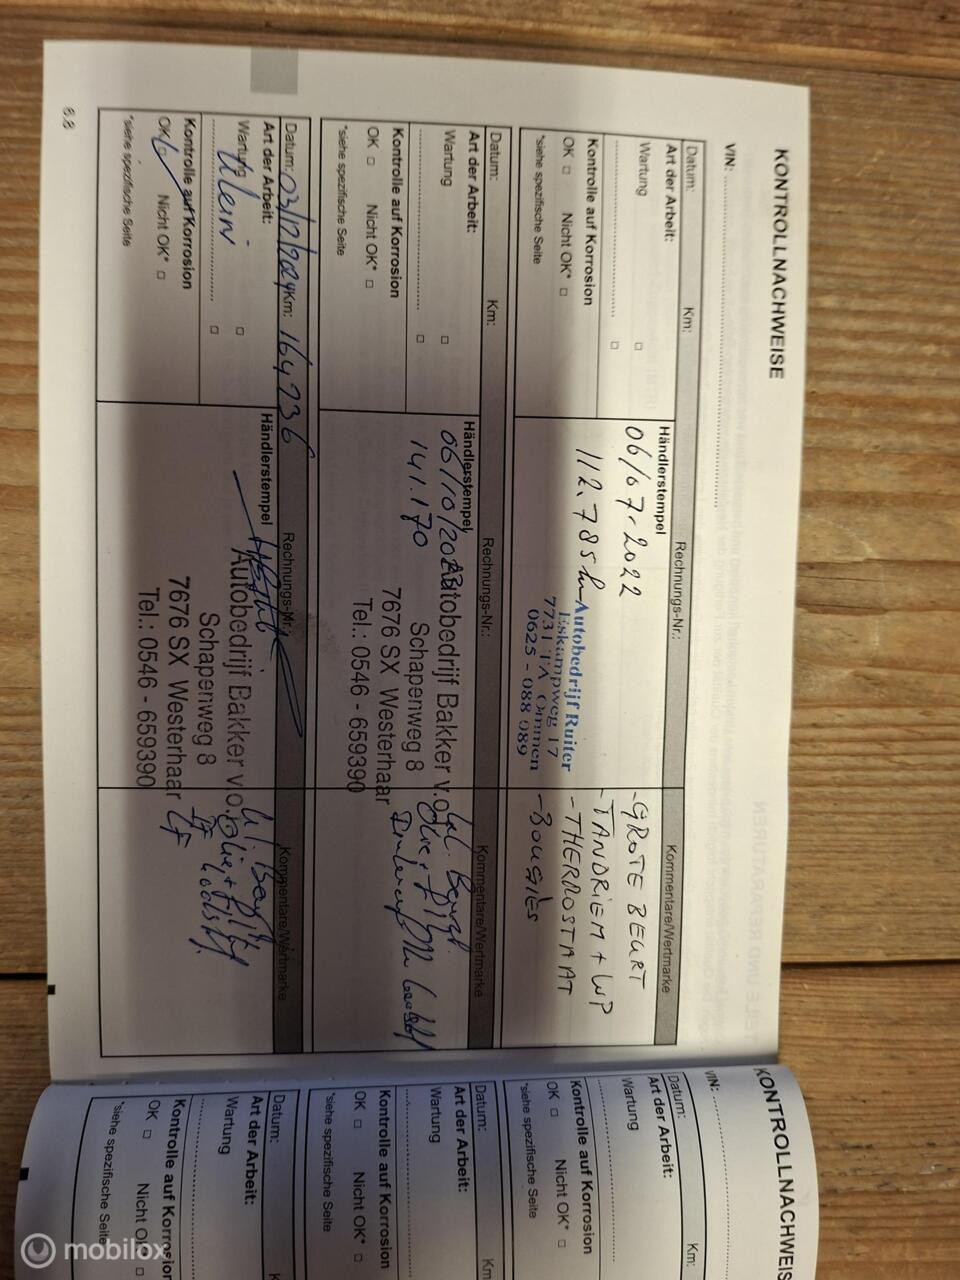 KONTROLLNACHWEISE
VIN:
Datum: Km: Rechnungs-Nr.: Kommentare/Wertmarke
Art der Arbeit: Händlerstempel
Wartung □
□
Kontrolle auf Korrosion
OK □ Nicht OK* □
*siehe spezifische Seite
06/07-2022
112.785
Autobedrijf Ruiter
Eskampweg 17
7731 TA Ommen
0625 - 088 089
- GROTE BEURT
- TANDRIEM + WP
- THERMOSTAAT
- BOUGIES
Datum: Km: Rechnungs-Nr.: Kommentare/Wertmarke
Art der Arbeit: Händlerstempel
Wartung □
□
Kontrolle auf Korrosion
OK □ Nicht OK* □
*siehe spezifische Seite
06/10/2023
141.170
Autobedrijf Bakker v.o.
Schapenweg 8
7676 SX Westerhaar
Tel.: 0546 - 659390
Datum: 03/12/2024 Km: 164736 Rechnungs-Nr.: Kommentare/Wertmarke
Art der Arbeit: Händlerstempel
Wartung □
Klein
□
Kontrolle auf Korrosion
OK □ Nicht OK* □
*siehe spezifische Seite
Autobedrijf Bakker v.o.
Schapenweg 8
7676 SX Westerhaar
Tel.: 0546 - 659390
6.8
KONTROLLNACHWEIS
VIN:
Datum: Km:
Art der Arbeit:
Wartung
Kontrolle auf Korrosion
OK □ Nicht OK* □
*siehe spezifische Seite
Datum: Km:
Art der Arbeit:
Wartung
Kontrolle auf Korrosion
OK □ Nicht OK* □
*siehe spezifische Seite
Datum: K
Art der Arbeit:
Wartung
Kontrolle auf Korrosion
OK □ Nicht OK* □
*siehe spezifische Seite
mobilox